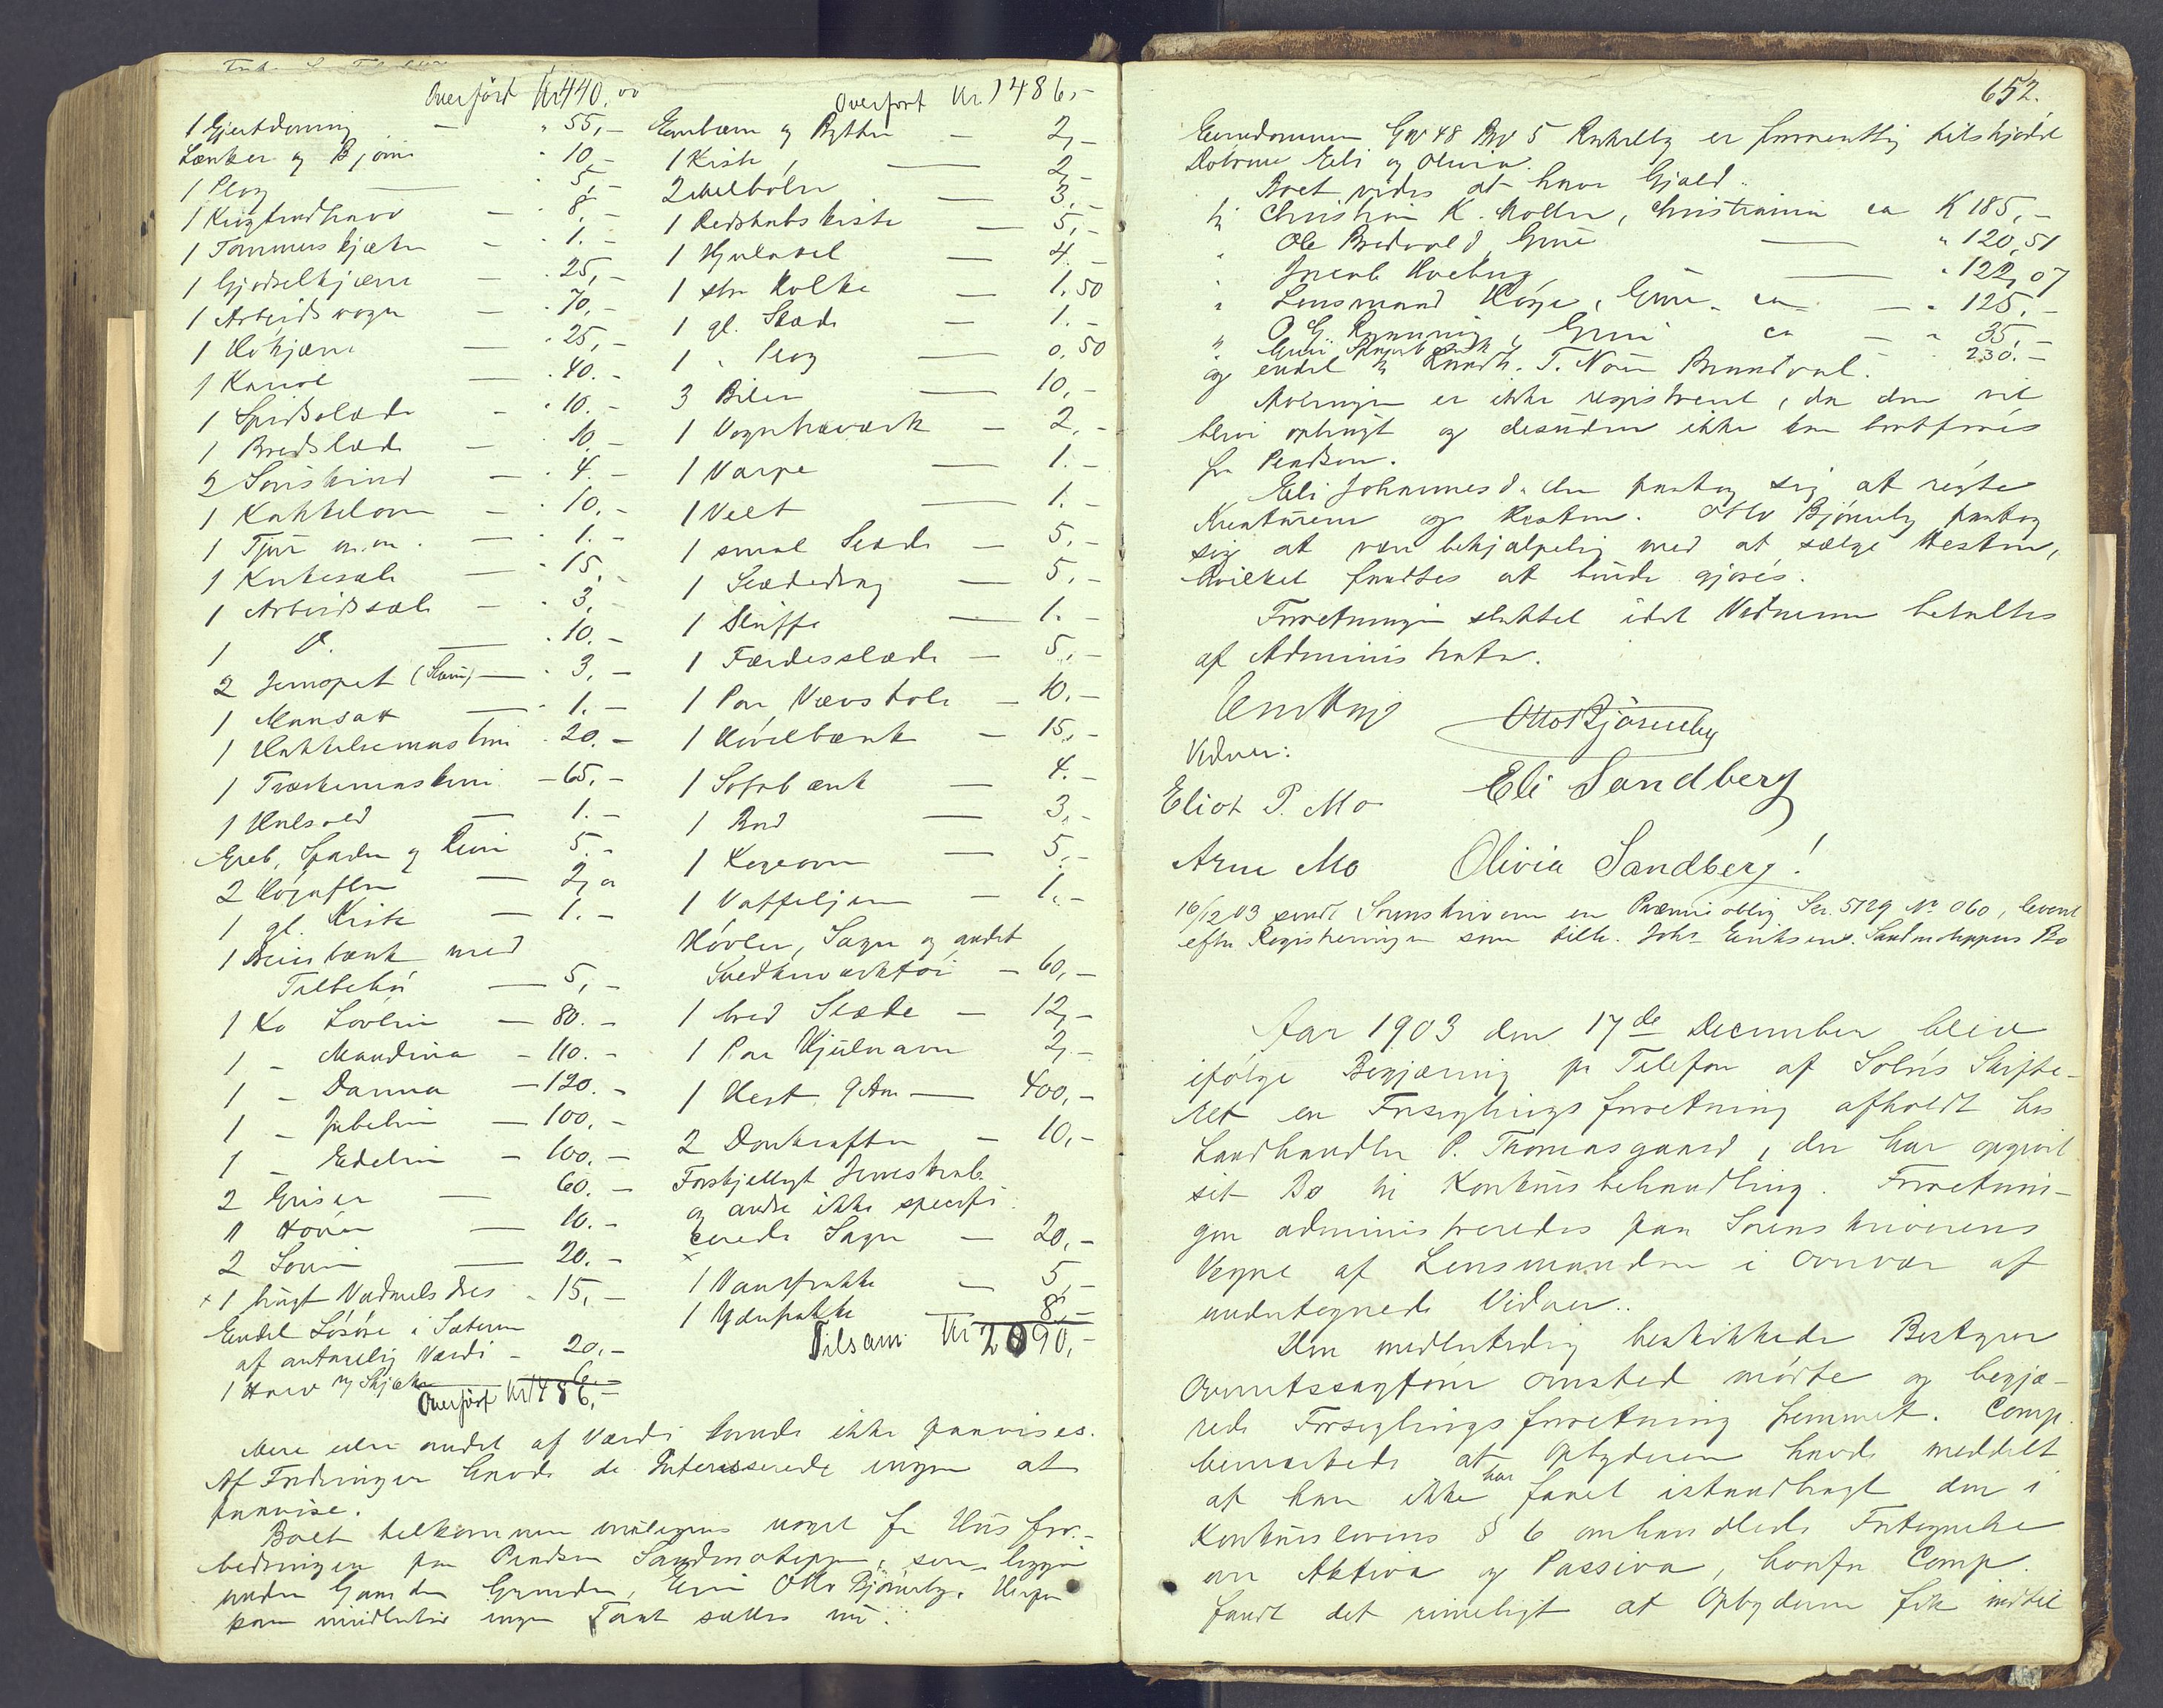 Overført Kr 440,00
1 Gjertdoning — " 55,–
Lænker og Bjørn " 10,–
1 Plog — " 5,–
1 Krogtindharv — " 8,–
1 Tømmerkjælke — " 1.–
1 Gjødselkjærre — " 25,–
1 Arbeidsvogn — " 70,–
1 Høkjærre — " 25,–
1 Kariol — " 40.–
1 Spidsslæde — " 10.–
1 Bredslæde — 10.–
2 Saueskind — " 4.–
1 Kakkelovn — " 10.–
1 Tjor m.m. — " 1.–
1 Kirkesæle — " 15,–
1 Arbeidssæle — " 3,–
1 D. — " 10.–
2 — " 3,–
1 — " 1.–
1 Hakkelsemaskine " 20.–
1 Træskemaskine — 65,–
1 — 1.–
Greb, Spader og 5.–
2 Høgafler — 2,00
1 gl. Kiste — 1.–
1 bænk med
Tilbehør — 5,–
1 Ko Lovlin — 80.–
1 " Mandina — 110.–
1 " Danna — 120.–
1 " Jubelin — 100,–
1 " Edelin — 100.–
2 Griser — 60.–
11 Høner — 10.–
2 Sauer — 20.–
× 1 brugt Vadmelsdres " 15,–
Endel Løsøre i Sæteren
af antagelig Værdi — 20,–
1 Harv 6.–
Overført Kr 1486,–
Overført Kr 1486,–
og Bytter — 2,–
1 Kiste, — 2,–
2 Melbøler 3,–
1 Redskabskiste — 5,–
1 Hjulaxel — 4.–
1 stor Holke — 1.50
1 gl. Slæde — 1.–
1 " Plog — 0,50
3 Biler — 10,–
1 Vogntræværk — 2,–
1 Varpe — 1.–
1 Velt — 1.–
1 smal Slæde — 5.–
1 Slædedrag — 5,–
1 Sluffe — 1.–
1 Færdesslæde — 5,–
1 Par Vævstole — 10.–
1 Høvelbænk — 15,–
1 Sofabænk — 4.–
1 Bord — 3,–
1 Kogeovn — 5,–
1 Vaffeljern — 1,–
Høvler, Sager og andet
Snedkerværktøi — 60,–
1 bred Slæde — 12,–
1 Par Hjulnavn 2,–
1 Hest, 9 Aar — 400,–
2 Donkrafter — 10,–
Forskjelligt Jernskrab
og andre ikke specifi-
cerede Sager — 20,–
×
1 Vandfrakke — 5,–
1 frakke — 8,–
Tilsam: Kr 2090,–
Mere eller andet af Værdi kunde ikke paavises.
Af Fordringer havde de Interesserede ingen at
paavise.
Boet tilkommer muligens noget for Husfor-
bedringer paa Pladsen Sandmoteppen, som ligger
under Gaarden Grinder, Eier Otto Bjørneby. Herpaa
kan imidlertid ingen Taxt sættes nu.
652.
Eiendommen Gno 48 Bno 5 er forventlig tilskjødet
Døtrene Eli og Olivia.
Boet vides at have Gjæld:
til Christian K. Møller, Christiania ca K 185,–
" Ole Bredvold, Grue — " 120,51
" Jacob — " 122,07
" Lensmand Høye, Grue ca — " 125,–
" O. G. , Grue ca — " 35,–
Grue 230.–
og endel til Landh. T. Brandval.
Avlingen er ikke registreret, da den vil
blive opbrugt og desuden ikke kan bortføres
fra Pladsen.
Eli Johannesd. der paatog sig at røgte
Kreaturene og Hesten. Otto Bjørneby paatog
sig at være behjælpelig med at sælge Hesten,
hvilket fandtes at burde gjøres.
Forretningen sluttet idet Vidnerne betaltes
af Administrator.
Otto Bjørneby
Vidner:
Eliot P. Mo Eli Sandberg
Arne Mo Olivia Sandberg!
16/12 03 sendt Sorenskriveren en Præmieoblig. Ser. 5129 No 060, leveret
efter Registreringen som tilh. Johs Eriksens. Sandmoteppens Bo
Aar 1903 den 17de December blev
ifølge Begjæring pr Telefon af Solørs Skifte-
ret en Forseglingsforretning afholdt hos
Landhandler P. Thomasgaard, der har opgivet
sit Bo til Konkursbehandling. Forretnin-
gen administreredes paa Sorenskriverens
Vegne af Lensmanden i Overvær af
undertegnede Vidner..
Den midlertidig beskikkede Bestyrer
Overretssagfører Omsted mødte og begjæ-
rede Forseglingsforretning fremmet. Comp.
bemærkede at Opbyderen havde meddelt
at han ikke har faaet istandbragt den i
Konkurslovens § 6 omhandlede Fortegnelse
over Aktiva og Passiva, hvorfor Comp.
fandt det rimeligt at Opbyderen fik indtil